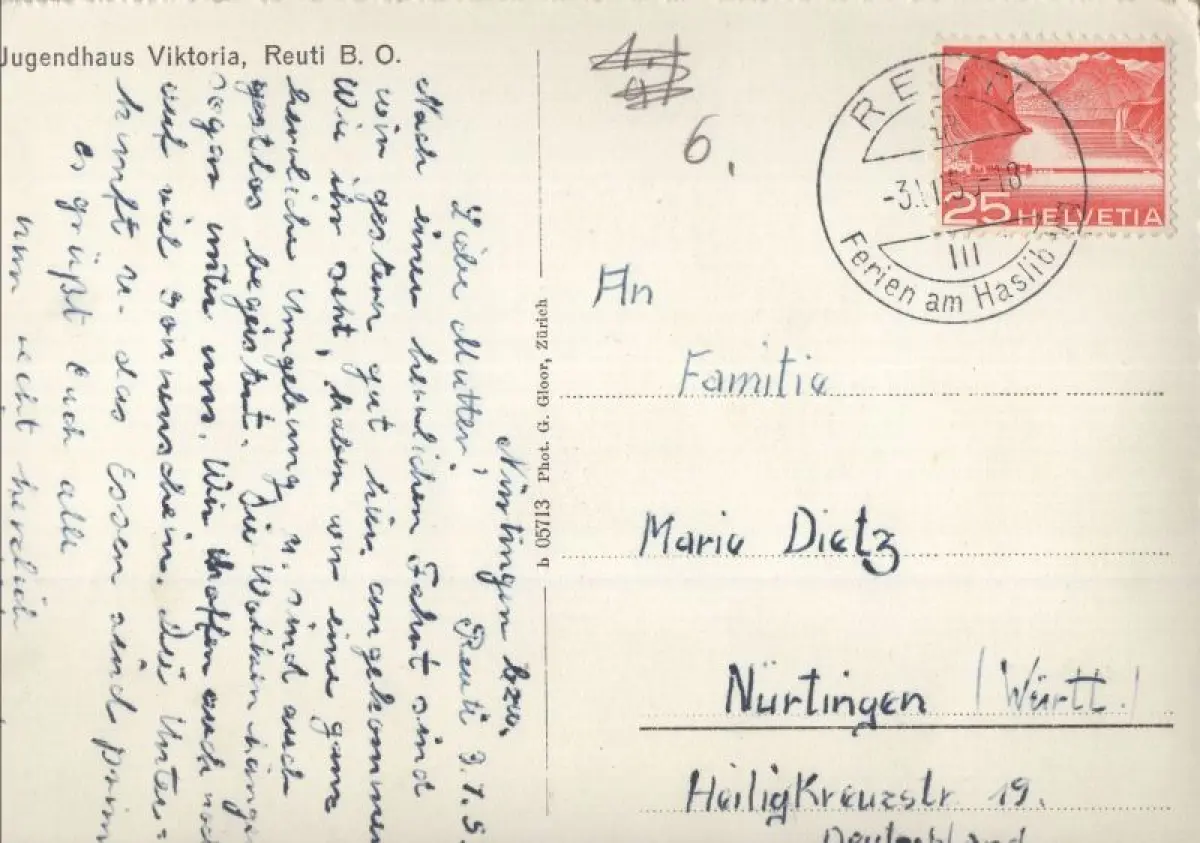 Jugendhaus Viktoria, Reuti B. O.
Nürtingen bzw.
Reuti 3.1.5
Liebe Mutter!
Nach einer herrlichen Fahrt sind
wir gestern gut hier angekommen
Wie ihr seht, haben wir eine ganz
herrliche Umgebung u. sind auch
restlos begeistert. Die Wolken hängen
sogar unter uns. Wir hoffen auch noch
auf viel Sonnenschein. Die Unter-
kunft u. das Essen sind prim
Es grüßt Euch alle
nun recht herzlich
b 05713 Phot. G. Gloor, Zürich
6.
REUTI
-3.1.5 -18
III
Ferien am Haslib
25 HELVETIA
An
Familie
Marie Dietz
Nürtingen (Württ.)
Heiligkreuzstr 19.
Deutschland